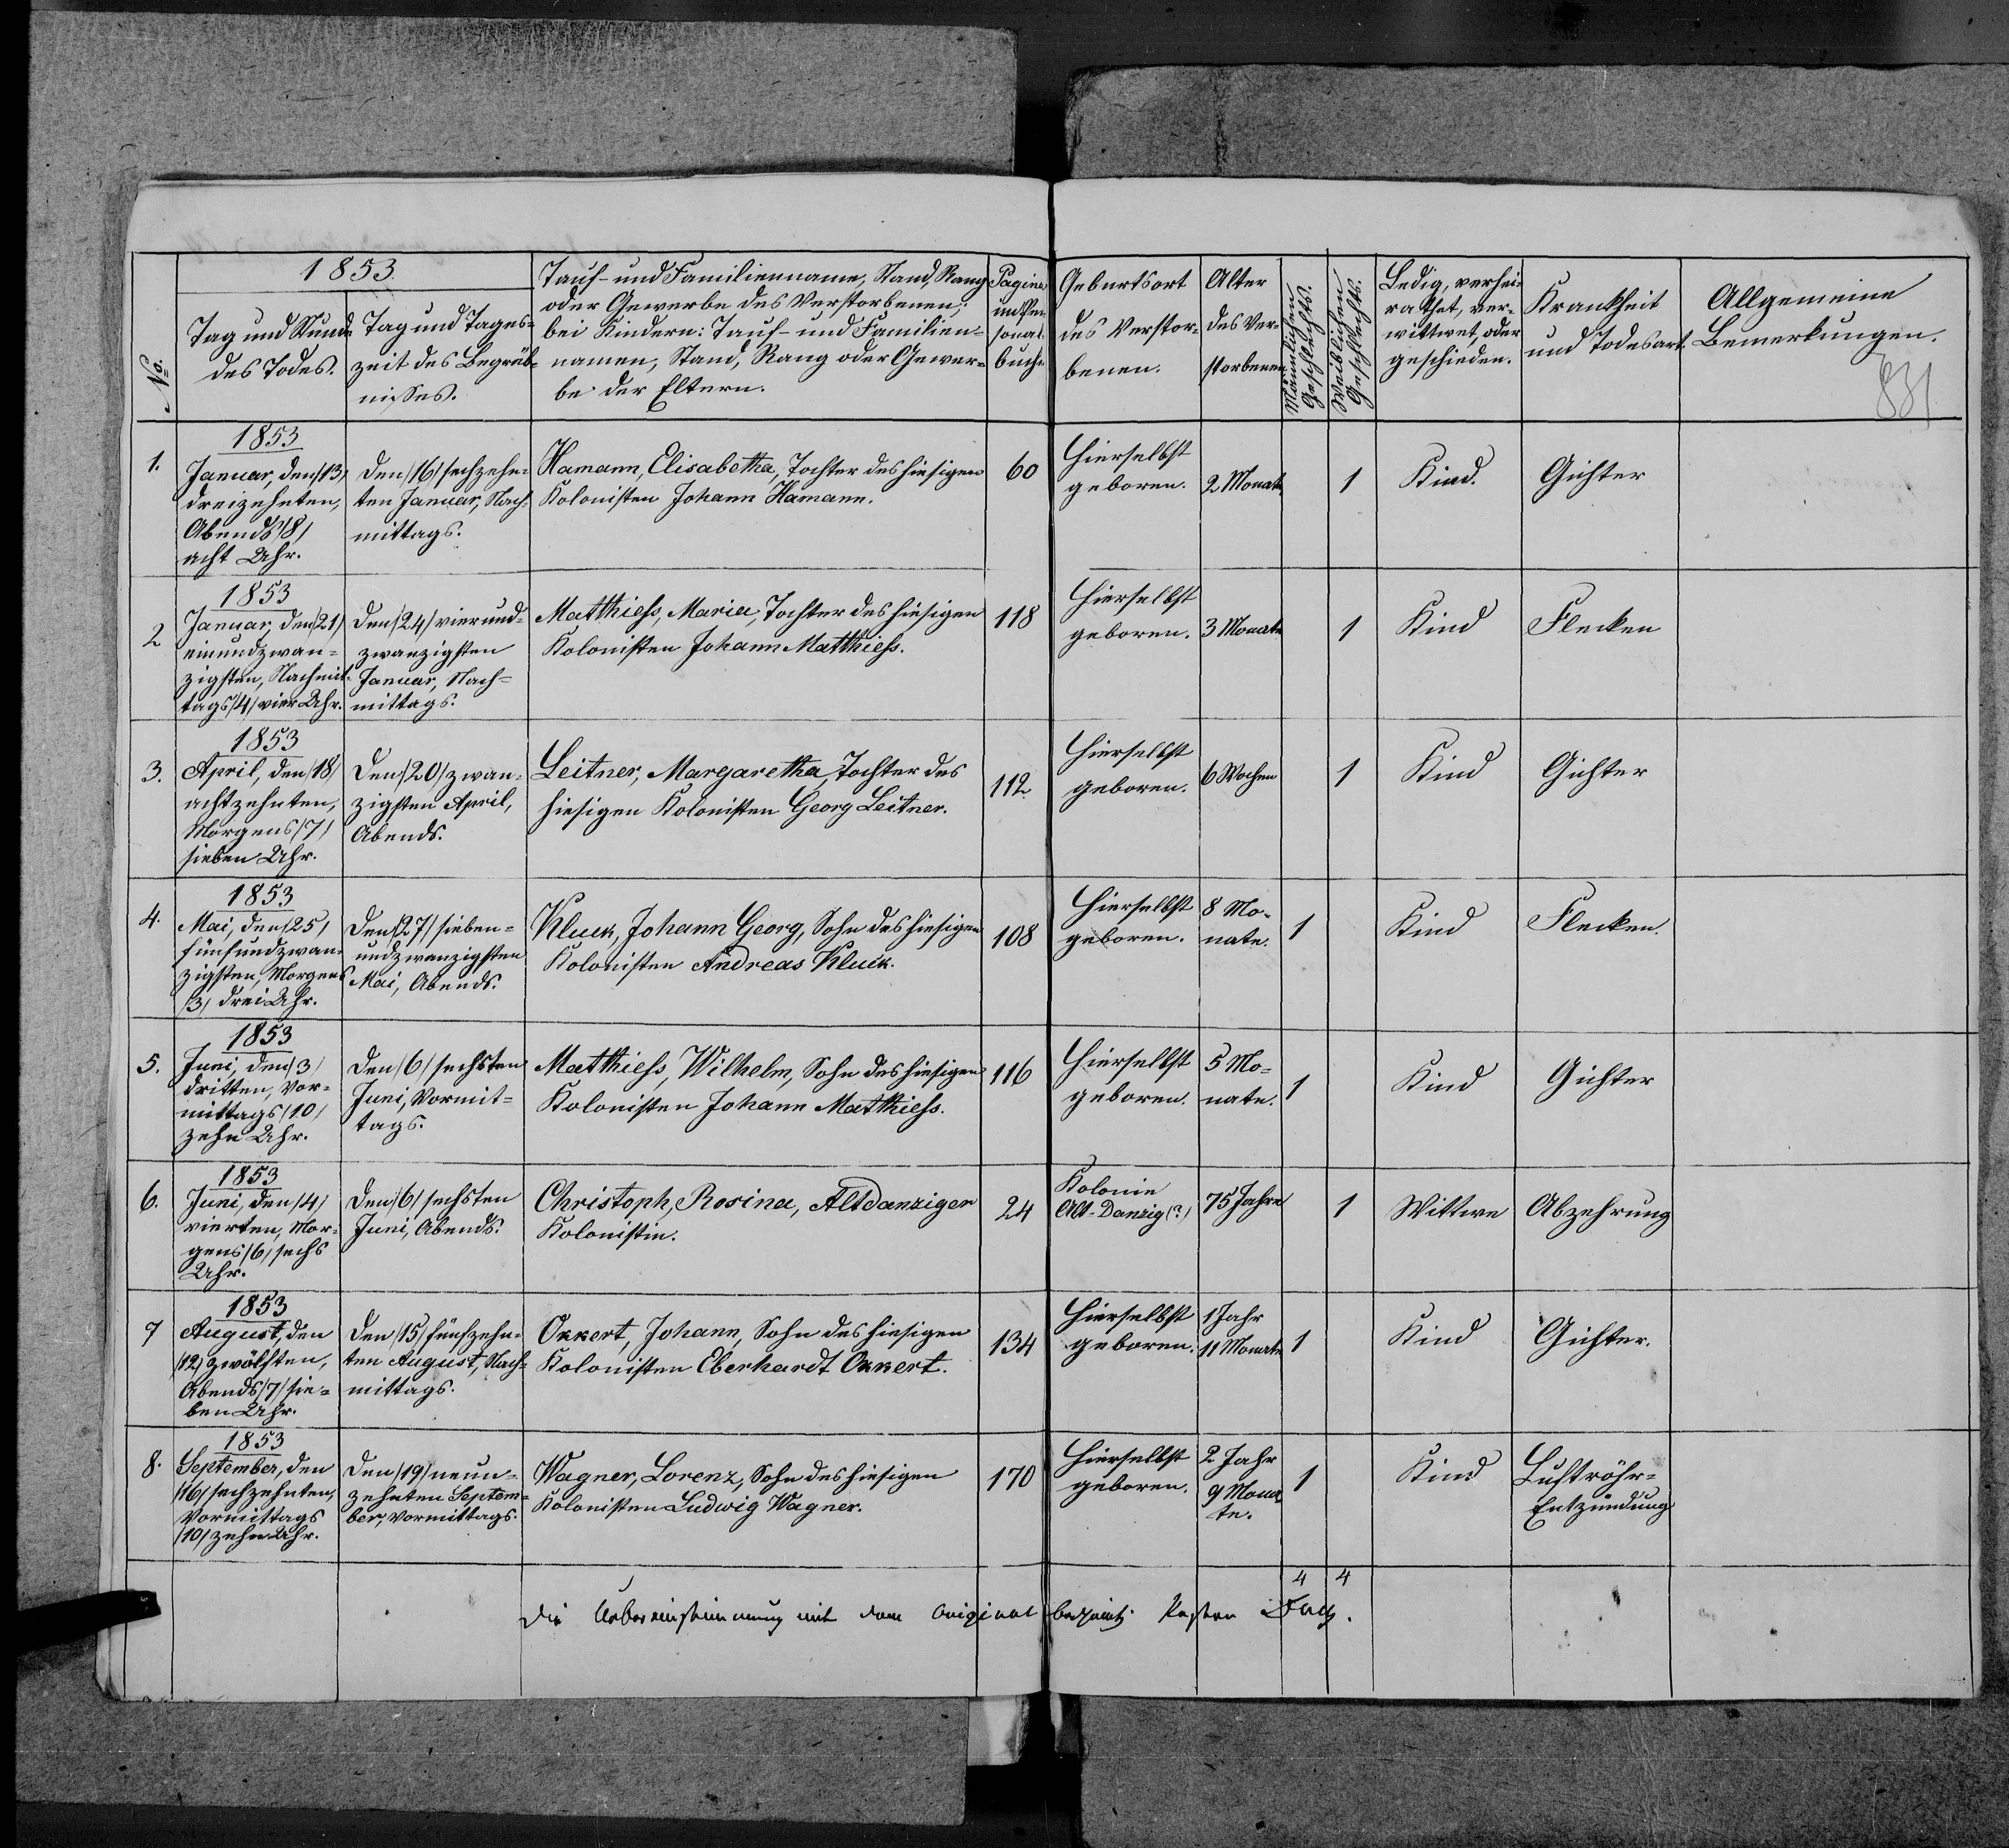 1853.
No.
Tag und Stunde
des Todes.
Tag und Tages-
zeit des Begräb-
nisses.
Tauf- und Familienname, Stand, Rang
oder Gewerbe des Verstorbenen;
bei Kindern: Tauf- und Familien-
namen, Stand, Rang oder Gewer-
be der Eltern.
Pagina
im Per-
sonal-
buche
Geburtsort
des Verstor-
benen.
Alter
des Ver-
storbenen
Männlichen
Geschlechts.
Weiblichen
Geschlechts.
Ledig, verhei-
rathet, ver-
wittwet, oder
geschieden.
Krankheit
und Todesart.
Allgemeine
Bemerkungen.
831
1.
1853
Januar, den /13/
dreizehnten,
Abends /8/
acht Uhr.
Den /16/ sechzehn-
ten Januar, Nach-
mittags.
Hamann, Elisabetha, Tochter des hiesigen
Kolonisten Johann Hamann.
60
Hierselbst
geboren.
2 Monate
1
Kind.
Gichter
2
1853
Januar, den /21/
einundzwan-
zigsten, Nachmit-
tags /4/ vier Uhr.
Den /24/ vierund-
zwanzigsten
Januar, Nach-
mittags.
Matthiess, Maria, Tochter des hiesigen
Kolonisten Johann Matthiess.
118
Hierselbst
geboren.
3 Monate
1
Kind
Flecken
3.
1853
April, den /18/
achtzehnten,
Morgens /7/
sieben Uhr.
Den /20/ zwan-
zigsten April,
Abends.
Leitner, Margaretha, Tochter des
hiesigen Kolonisten Georg Leitner.
112
Hierselbst
geboren.
6 Wochen
1
Kind
Gichter
4.
1853
Mai, den /25/
fünfundzwan-
zigsten, Morgens
/3/ drei Uhr.
Den /27/ sieben-
undzwanzigsten
Mai, Abends.
Kluck, Johann Georg, Sohn des hiesigen
Kolonisten Andreas Kluck.
108
Hierselbst
geboren.
8 Mo-
nate.
1
Kind
Flecken.
5.
1853
Juni, den /3/
dritten, Vor-
mittags /10/
zehn Uhr.
Den /6/ sechsten
Juni, Vormit-
tags.
Matthiess, Wilhelm, Sohn des hiesigen
Kolonisten Johann Matthiess.
116
Hierselbst
geboren.
5 Mo-
nate.
1
Kind
Gichter
6.
1853
Juni, den /4/
vierten, Mor-
gens /6/ sechs
Uhr.
Den /6/ sechsten
Juni, Abends.
Christoph, Rosina, Altdanziger
Kolonistin.
24
Kolonie
Alt-Danzig (?)
75 Jahre
1
Wittwe
Abzehrung
7
1853
August, den
/12/ zwölften,
Abends /7/ sie-
ben Uhr.
Den /15/ fünfzehn-
ten August, Nach-
mittags.
Okkert, Johann, Sohn des hiesigen
Kolonisten Eberhardt Okkert.
134
Hierselbst
geboren.
1 Jahr
11 Monate
1
Kind
Gichter.
8.
1853
September, den
/16/ sechzehnten,
Vormittags
/10/ zehn Uhr.
Den /19/ neun-
zehnten Septem-
ber, Vormittags.
Wagner, Lorenz, Sohn des hiesigen
Kolonisten Ludwig Wagner.
170
Hierselbst
geboren.
2 Jahr
9 Mona-
te.
1
Kind
Luftröhr-
Entzündung
4 4
Die Uebereinstimmung mit dem Original bezeugt Pastor